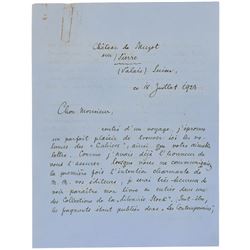 Château de Muzot
sur Sierre
(Valais) Suisse
ce 18 Juillet 1924
Cher Monsieur,
rentré d'un voyage, j'éprouve
un parfait plaisir de trouver ici les vo-
lumes des "Cahiers", ainsi que votre aimable
lettre. Comme j'avais déjà l'honneur de
vous l'assurer lorsque vous me communiquiez
la première fois l'intention charmante de
M. M. vos éditeurs, je serai très heureux de
voir paraître mon livre en entier dans une
des Collections de la Librairie Stock.
les fragments étant publiés dans "Les Contemporains",